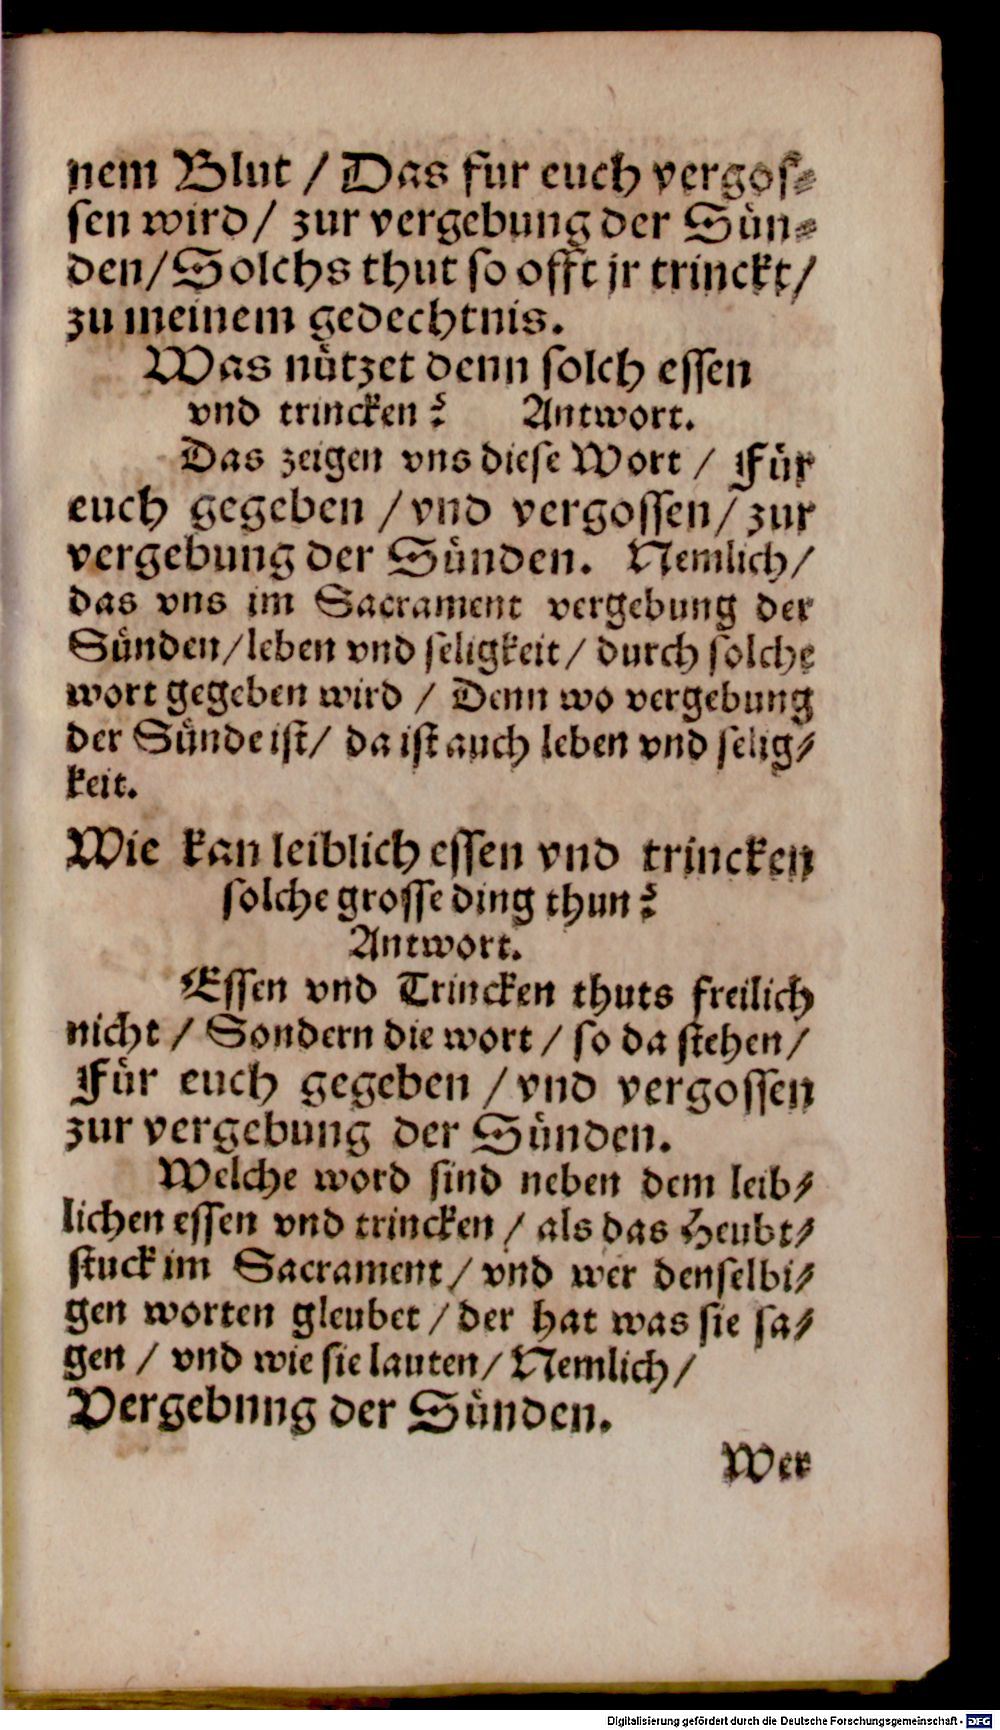 nem Blut / Das fur euch vergos⸗
sen wird / zur vergebung der Sün⸗
den / Solchs thut so offt jr trinckt /
zu meinem gedechtnis.
Was nützet denn solch essen
vnd trincken? Antwort.
Das zeigen vns diese Wort / Für
euch gegeben / vnd vergossen / zur
vergebung der Sünden. Nemlich /
das vns im Sacrament vergebung der
Sünden / leben vnd seligkeit / durch solche
wort gegeben wird / Denn wo vergebung
der Sünde ist / da ist auch leben vnd selig⸗
keit.
Wie kan leiblich essen vnd trincken
solche grosse ding thun?
Antwort.
Essen vnd Trincken thuts freilich
nicht / Sondern die wort / so da stehen /
Für euch gegeben / vnd vergossen
zur vergebung der Sünden.
Welche word sind neben dem leib⸗
lichen essen vnd trincken / als das Heubt⸗
stuck im Sacrament / vnd wer denselbi⸗
gen worten gleubet / der hat was sie sa⸗
gen / vnd wie sie lauten / Nemlich /
Vergebung der Sünden.
Wer
Digitalisierung gefördert durch die Deutsche Forschungsgemeinschaft - DFG